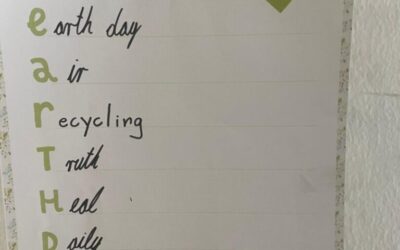 earth day
air
recycling
Truth
Heal
Daily